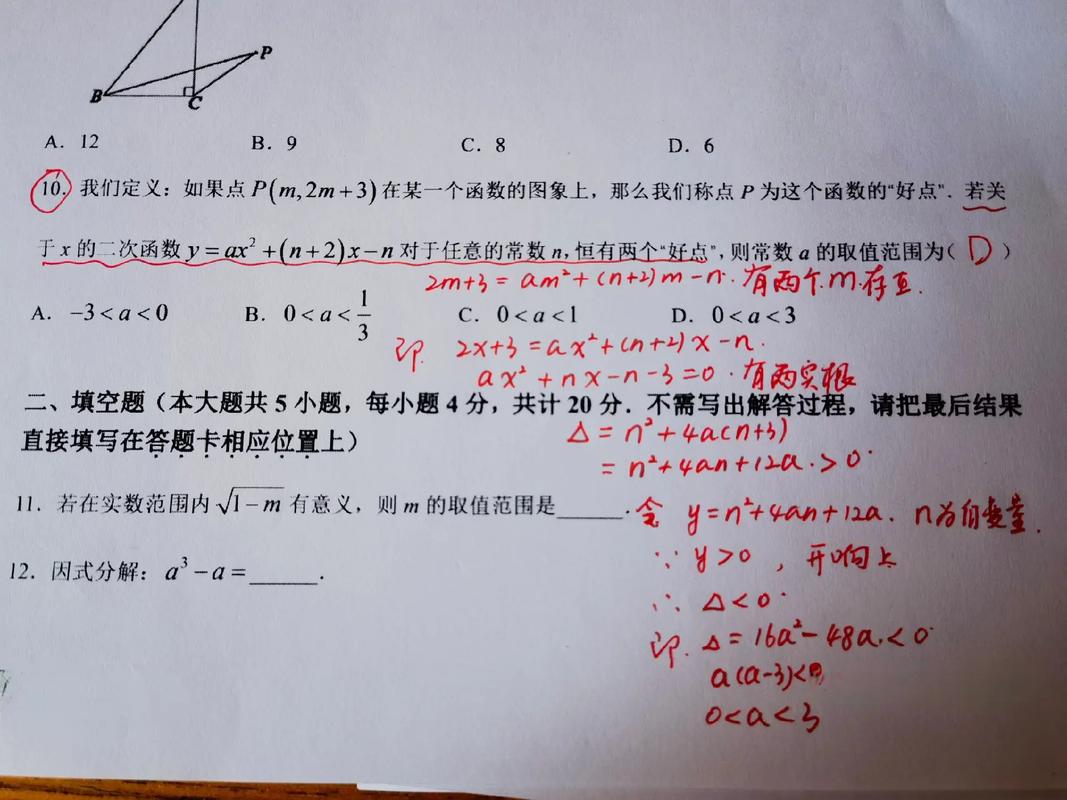 P
B
C
A. 12 B. 9 C. 8 D. 6
10. 我们定义：如果点 P(m,2m+3) 在某一个函数的图象上，那么我们称点 P 为这个函数的“好点”. 若关
于 x 的二次函数 y=ax²+(n+2)x-n 对于任意的常数 n, 恒有两个“好点”, 则常数 a 的取值范围为( D )
2m+3=am²+(n+2)m-n. 有两个m存在.
A. -3<a<0 B. 0<a<1/3 C. 0<a<1 D. 0<a<3
即. 2x+3=ax²+(n+2)x-n.
ax²+nx-n-3=0. 有两实根
二、填空题（本大题共 5 小题，每小题 4 分，共计 20 分．不需写出解答过程，请把最后结果
直接填写在答题卡相应位置上）
Δ=n²+4a(n+3)
=n²+4an+12a.>0.
11. 若在实数范围内 √(1-m) 有意义，则 m 的取值范围是______.
令 y=n²+4an+12a. n为自变量.
∵ y>0, 开口向上
12. 因式分解：a³-a=______.
∴ Δ<0.
即. Δ=16a²-48a.<0.
a(a-3)<0
0<a<3